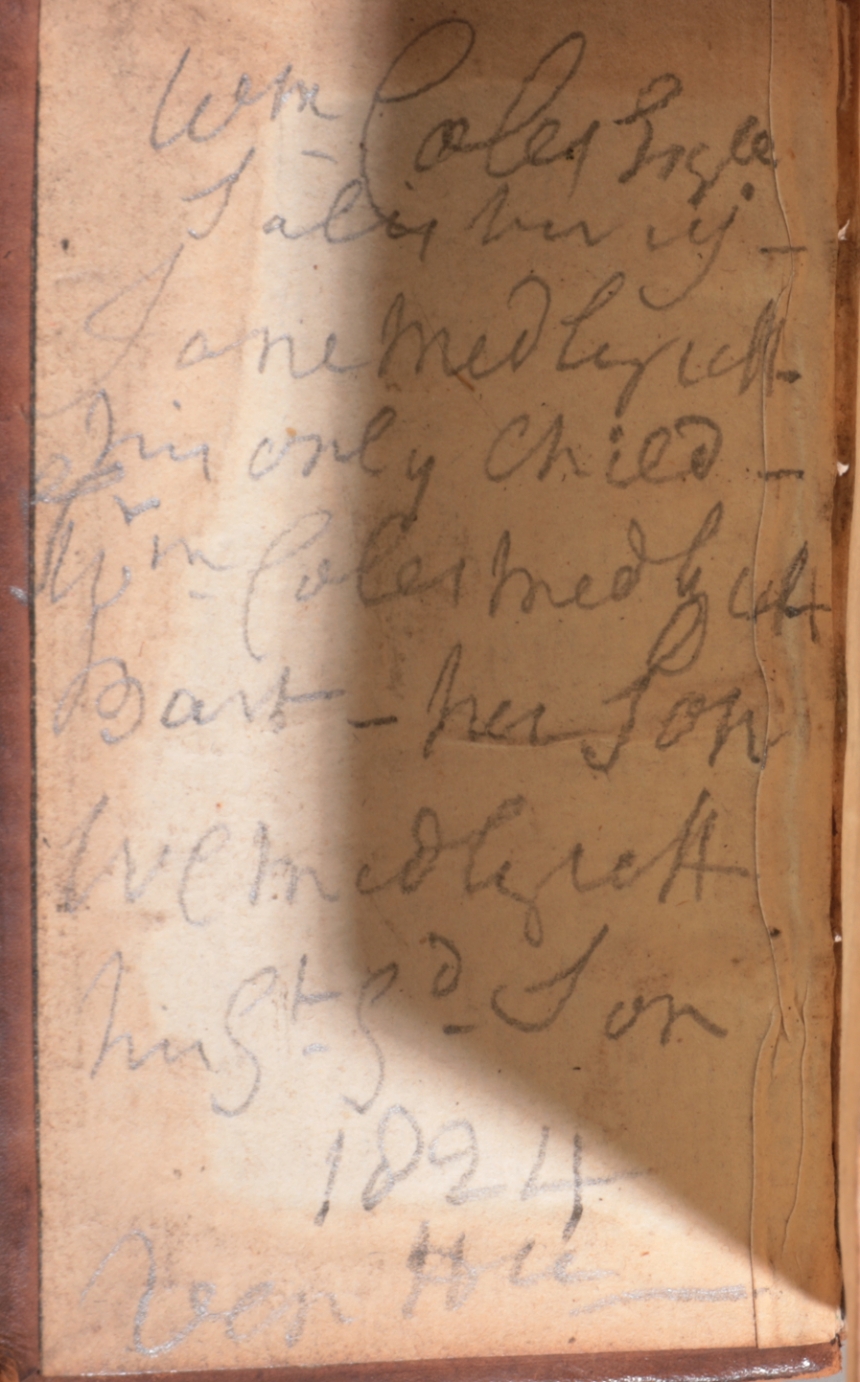 Wm Coles Esqre
Salisbury -
Jane Medlycott
his only Child -
Wm Coles Medlycott
Bart - her Son
Medlycott
his Gt Gd Son
1824
Ven House